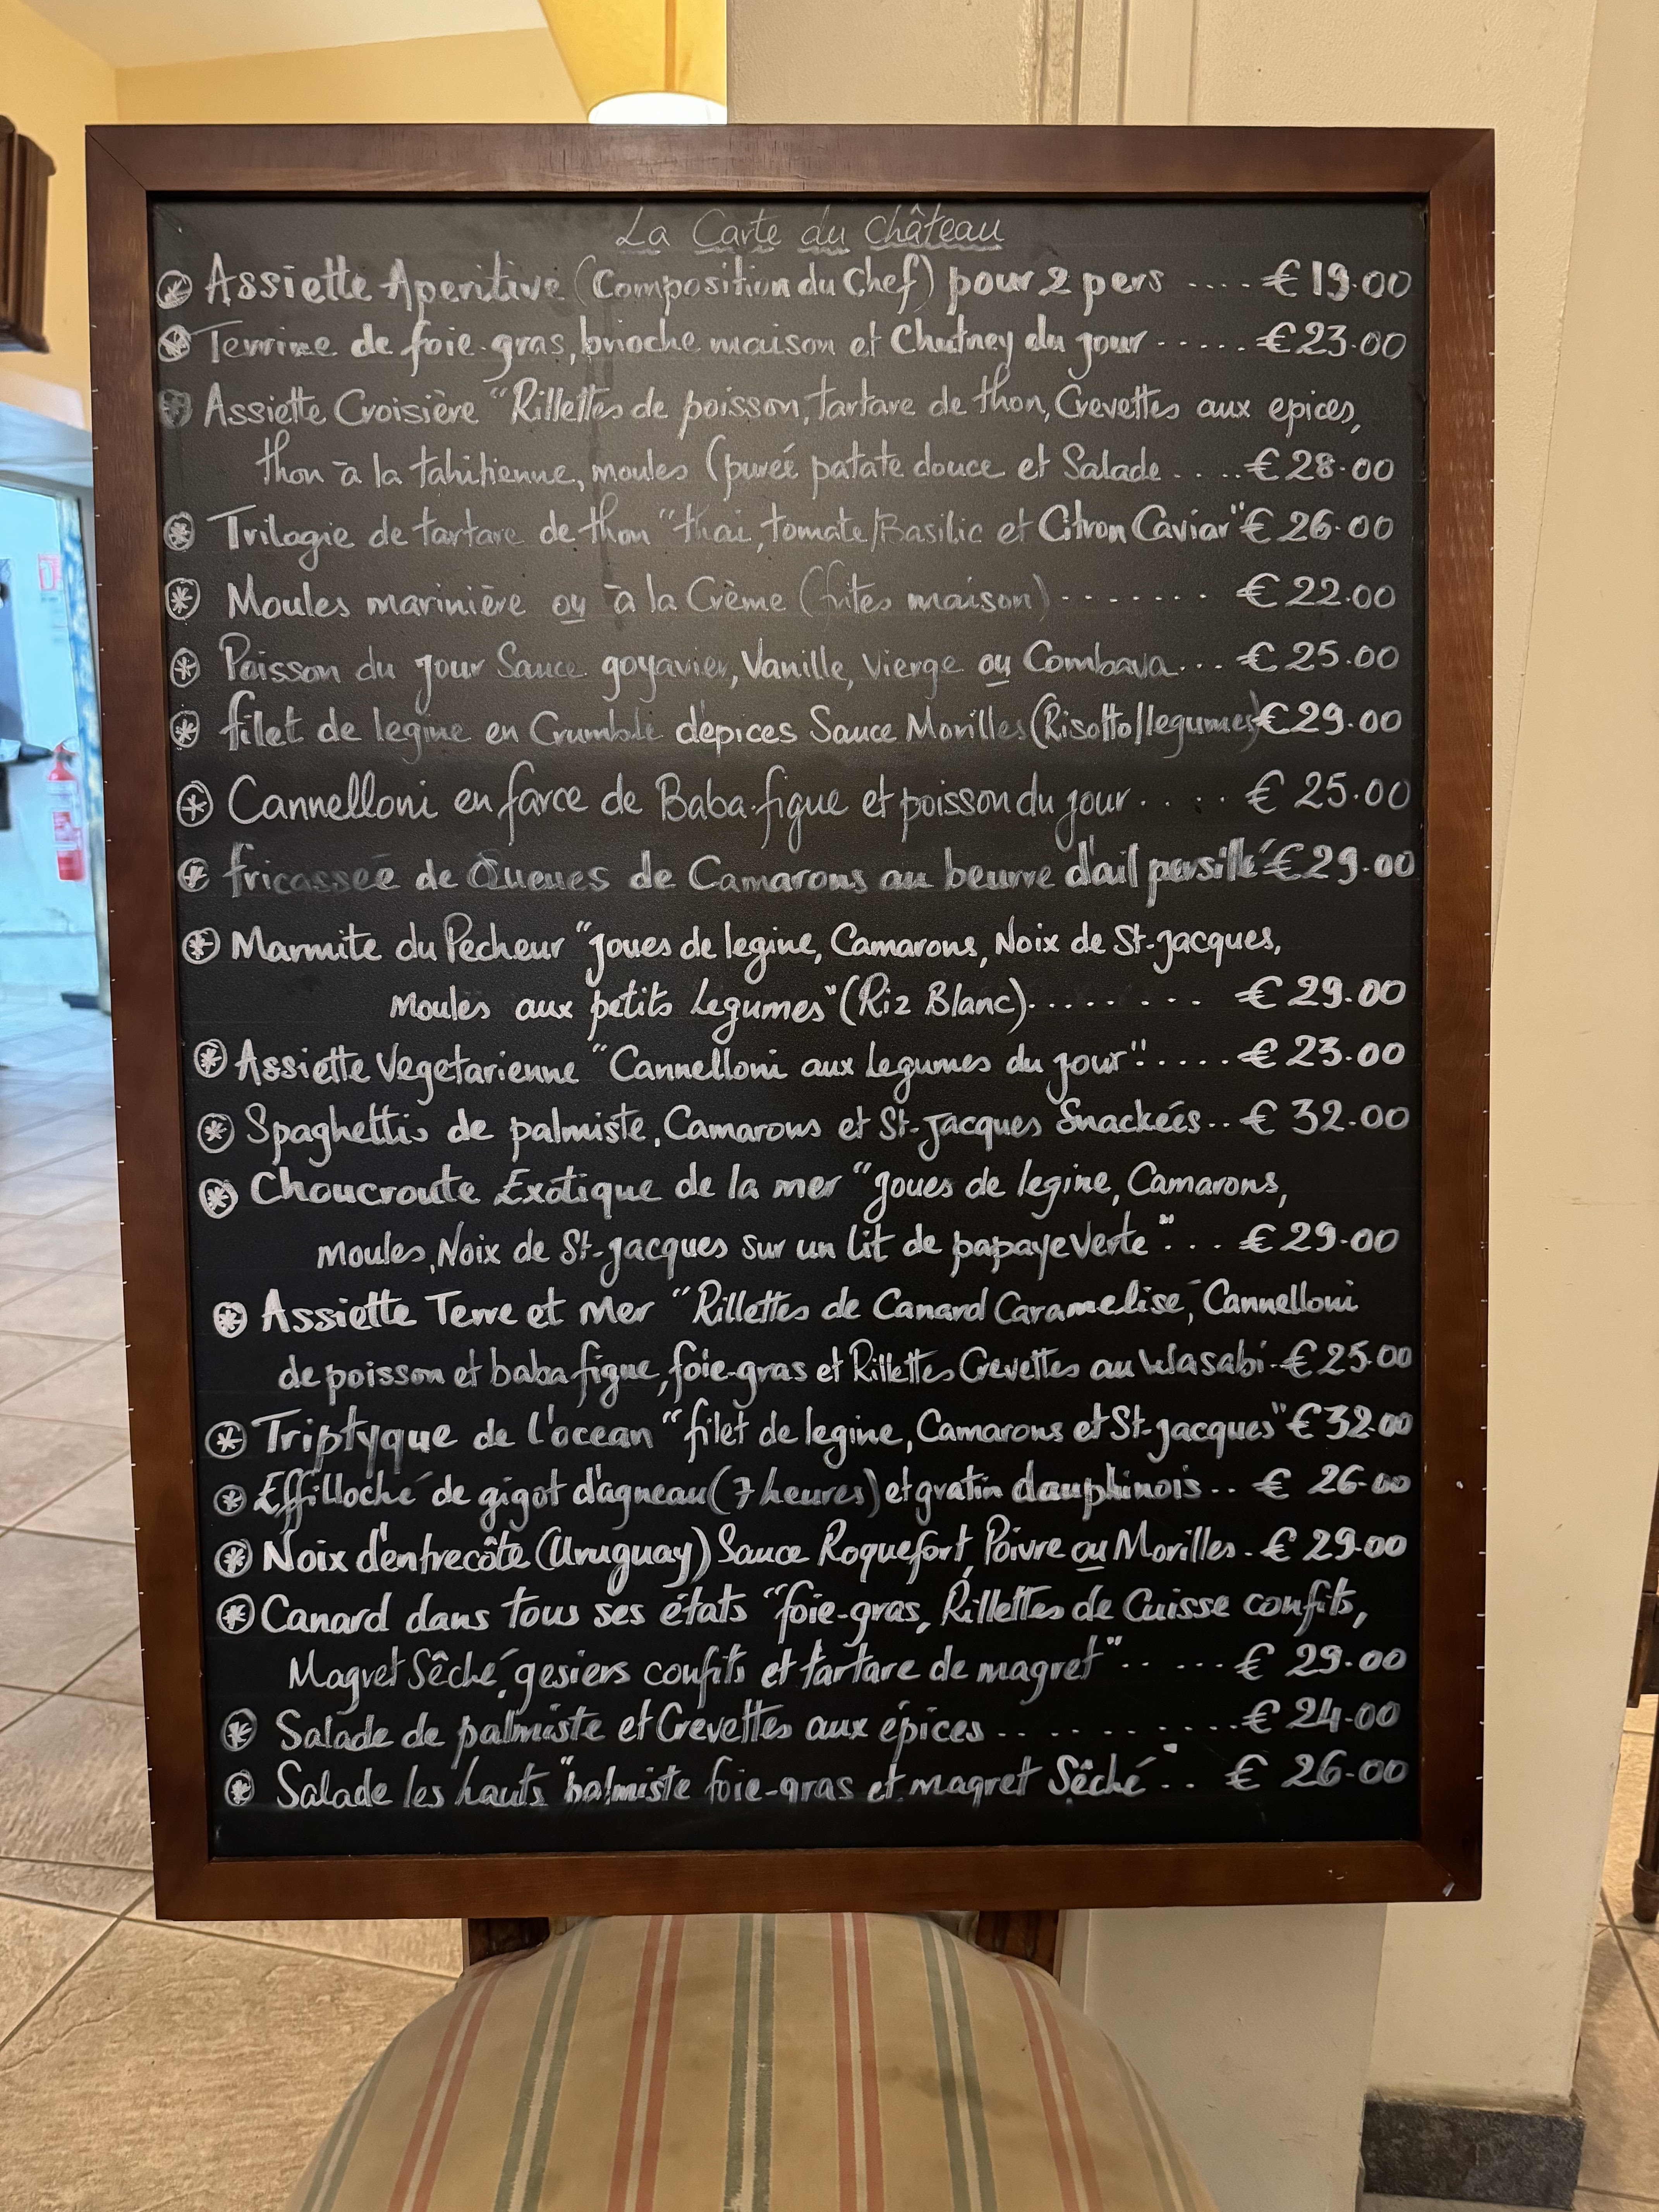 La Carte du château
Assiette Aperitive (Composition du Chef) pour 2 pers .... € 19.00
Terrine de foie-gras, brioche maison et Chutney du jour ..... € 23.00
Assiette Croisière "Rillettes de poisson, tartare de thon, Crevettes aux epices,
thon à la tahitienne, moules (purée patate douce et Salade .... € 28.00
Trilogie de tartare de thon "thai, tomate/Basilic et Citron Caviar" € 26.00
Moules marinière ou à la Crème (frites maison) ....... € 22.00
Poisson du jour Sauce goyavier, Vanille, Vierge ou Combava... € 25.00
filet de legine en Crumble d'epices Sauce Morilles (Risotto/legumes) € 29.00
Cannelloni en farce de Baba-figue et poisson du jour .... € 25.00
fricassée de Queues de Camarons au beurre d'ail persillé € 29.00
Marmite du Pecheur "joues de legine, Camarons, Noix de St-jacques,
Moules aux petits Legumes" (Riz Blanc)........ € 29.00
Assiette Vegetarienne "Cannelloni aux Legumes du jour"..... € 23.00
Spaghettis de palmiste, Camarons et St-jacques Snackées.. € 32.00
Choucroute Exotique de la mer "joues de legine, Camarons,
moules, Noix de St-jacques sur un lit de papaye verte"... € 29.00
Assiette Terre et Mer "Rillettes de Canard Caramelisé, Cannelloni
de poisson et baba figue, foie-gras et Rillettes Crevettes au Wasabi.€ 25.00
Triptyque de l'ocean "filet de legine, Camarons et St-jacques" € 32.00
Effilloché de gigot d'agneau (7 heures) et gratin dauphinois.. € 26.00
Noix d'entrecôte (Uruguay) Sauce Roquefort, Poivre ou Morilles. € 29.00
Canard dans tous ses états "foie-gras, Rillettes de Cuisse confits,
Magret Sêché, gesiers confits et tartare de magret"..... € 29.00
Salade de palmiste et Crevettes aux épices .......... € 24.00
Salade les hauts "palmiste foie-gras et magret Sêché".. € 26.00